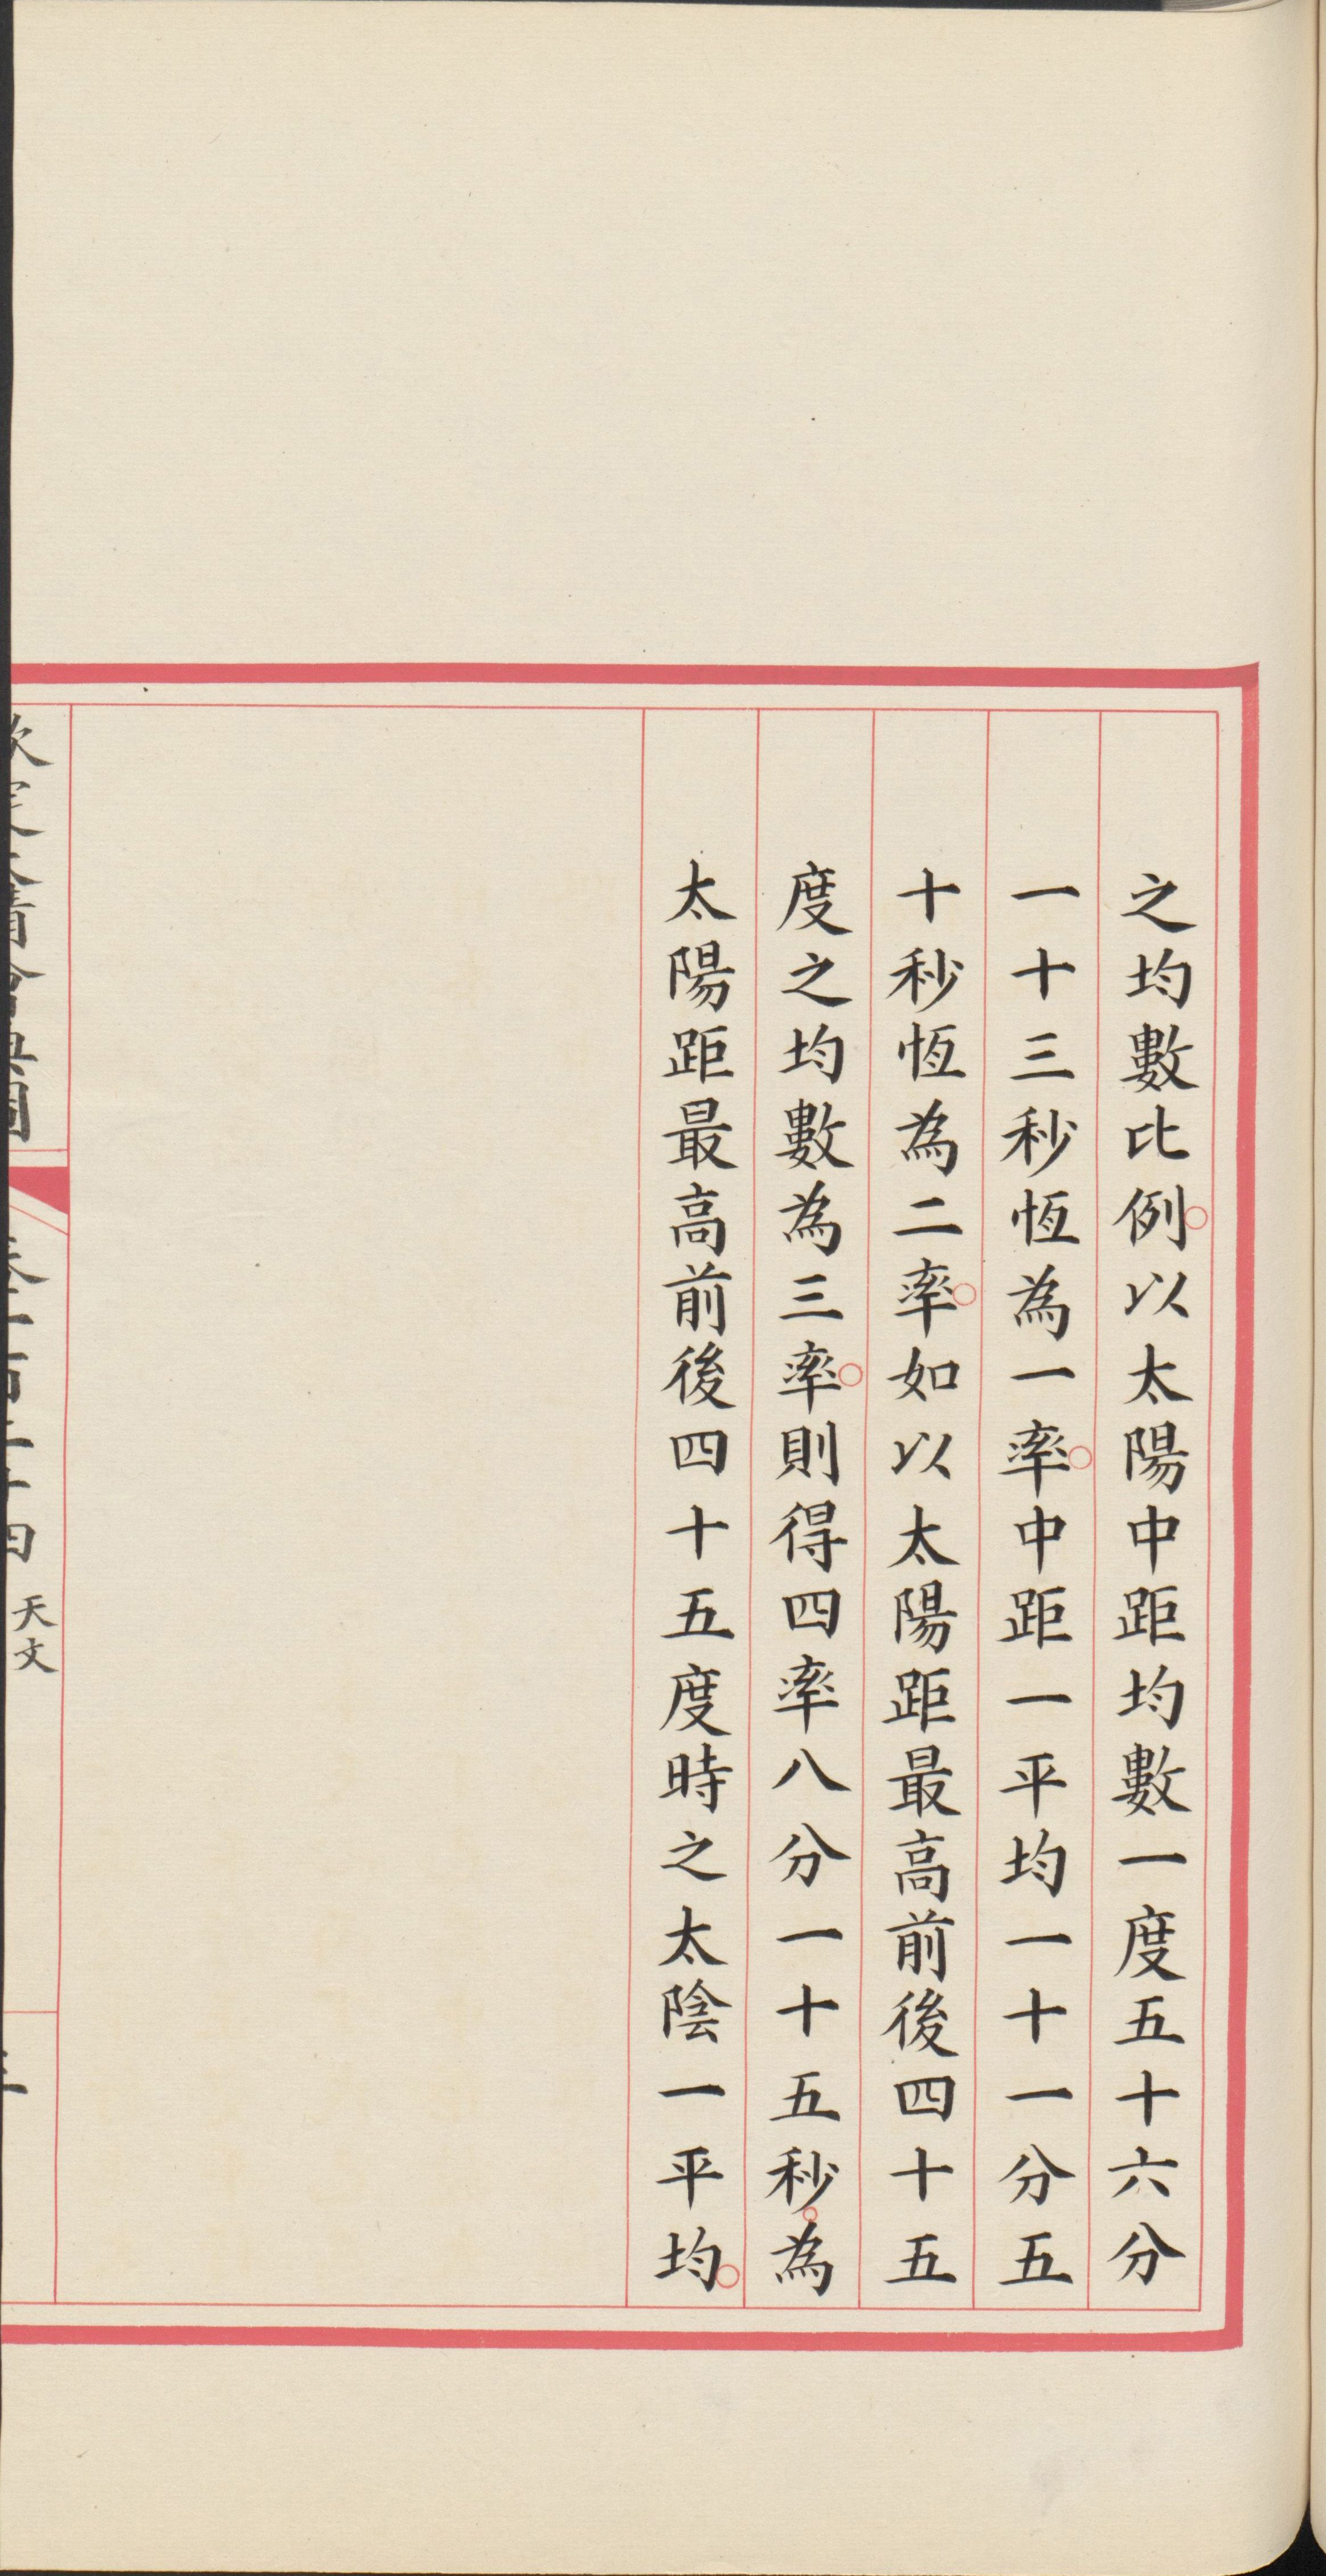 之均數比例以太陽中距均數一度五十六分
一十三秒恆為一率中距一平均一十一分五
十秒恆為二率如以太陽距最高前後四十五
度之均數為三率則得四率八分一十五秒為
太陽距最高前後四十五度時之太陰一平均
天文